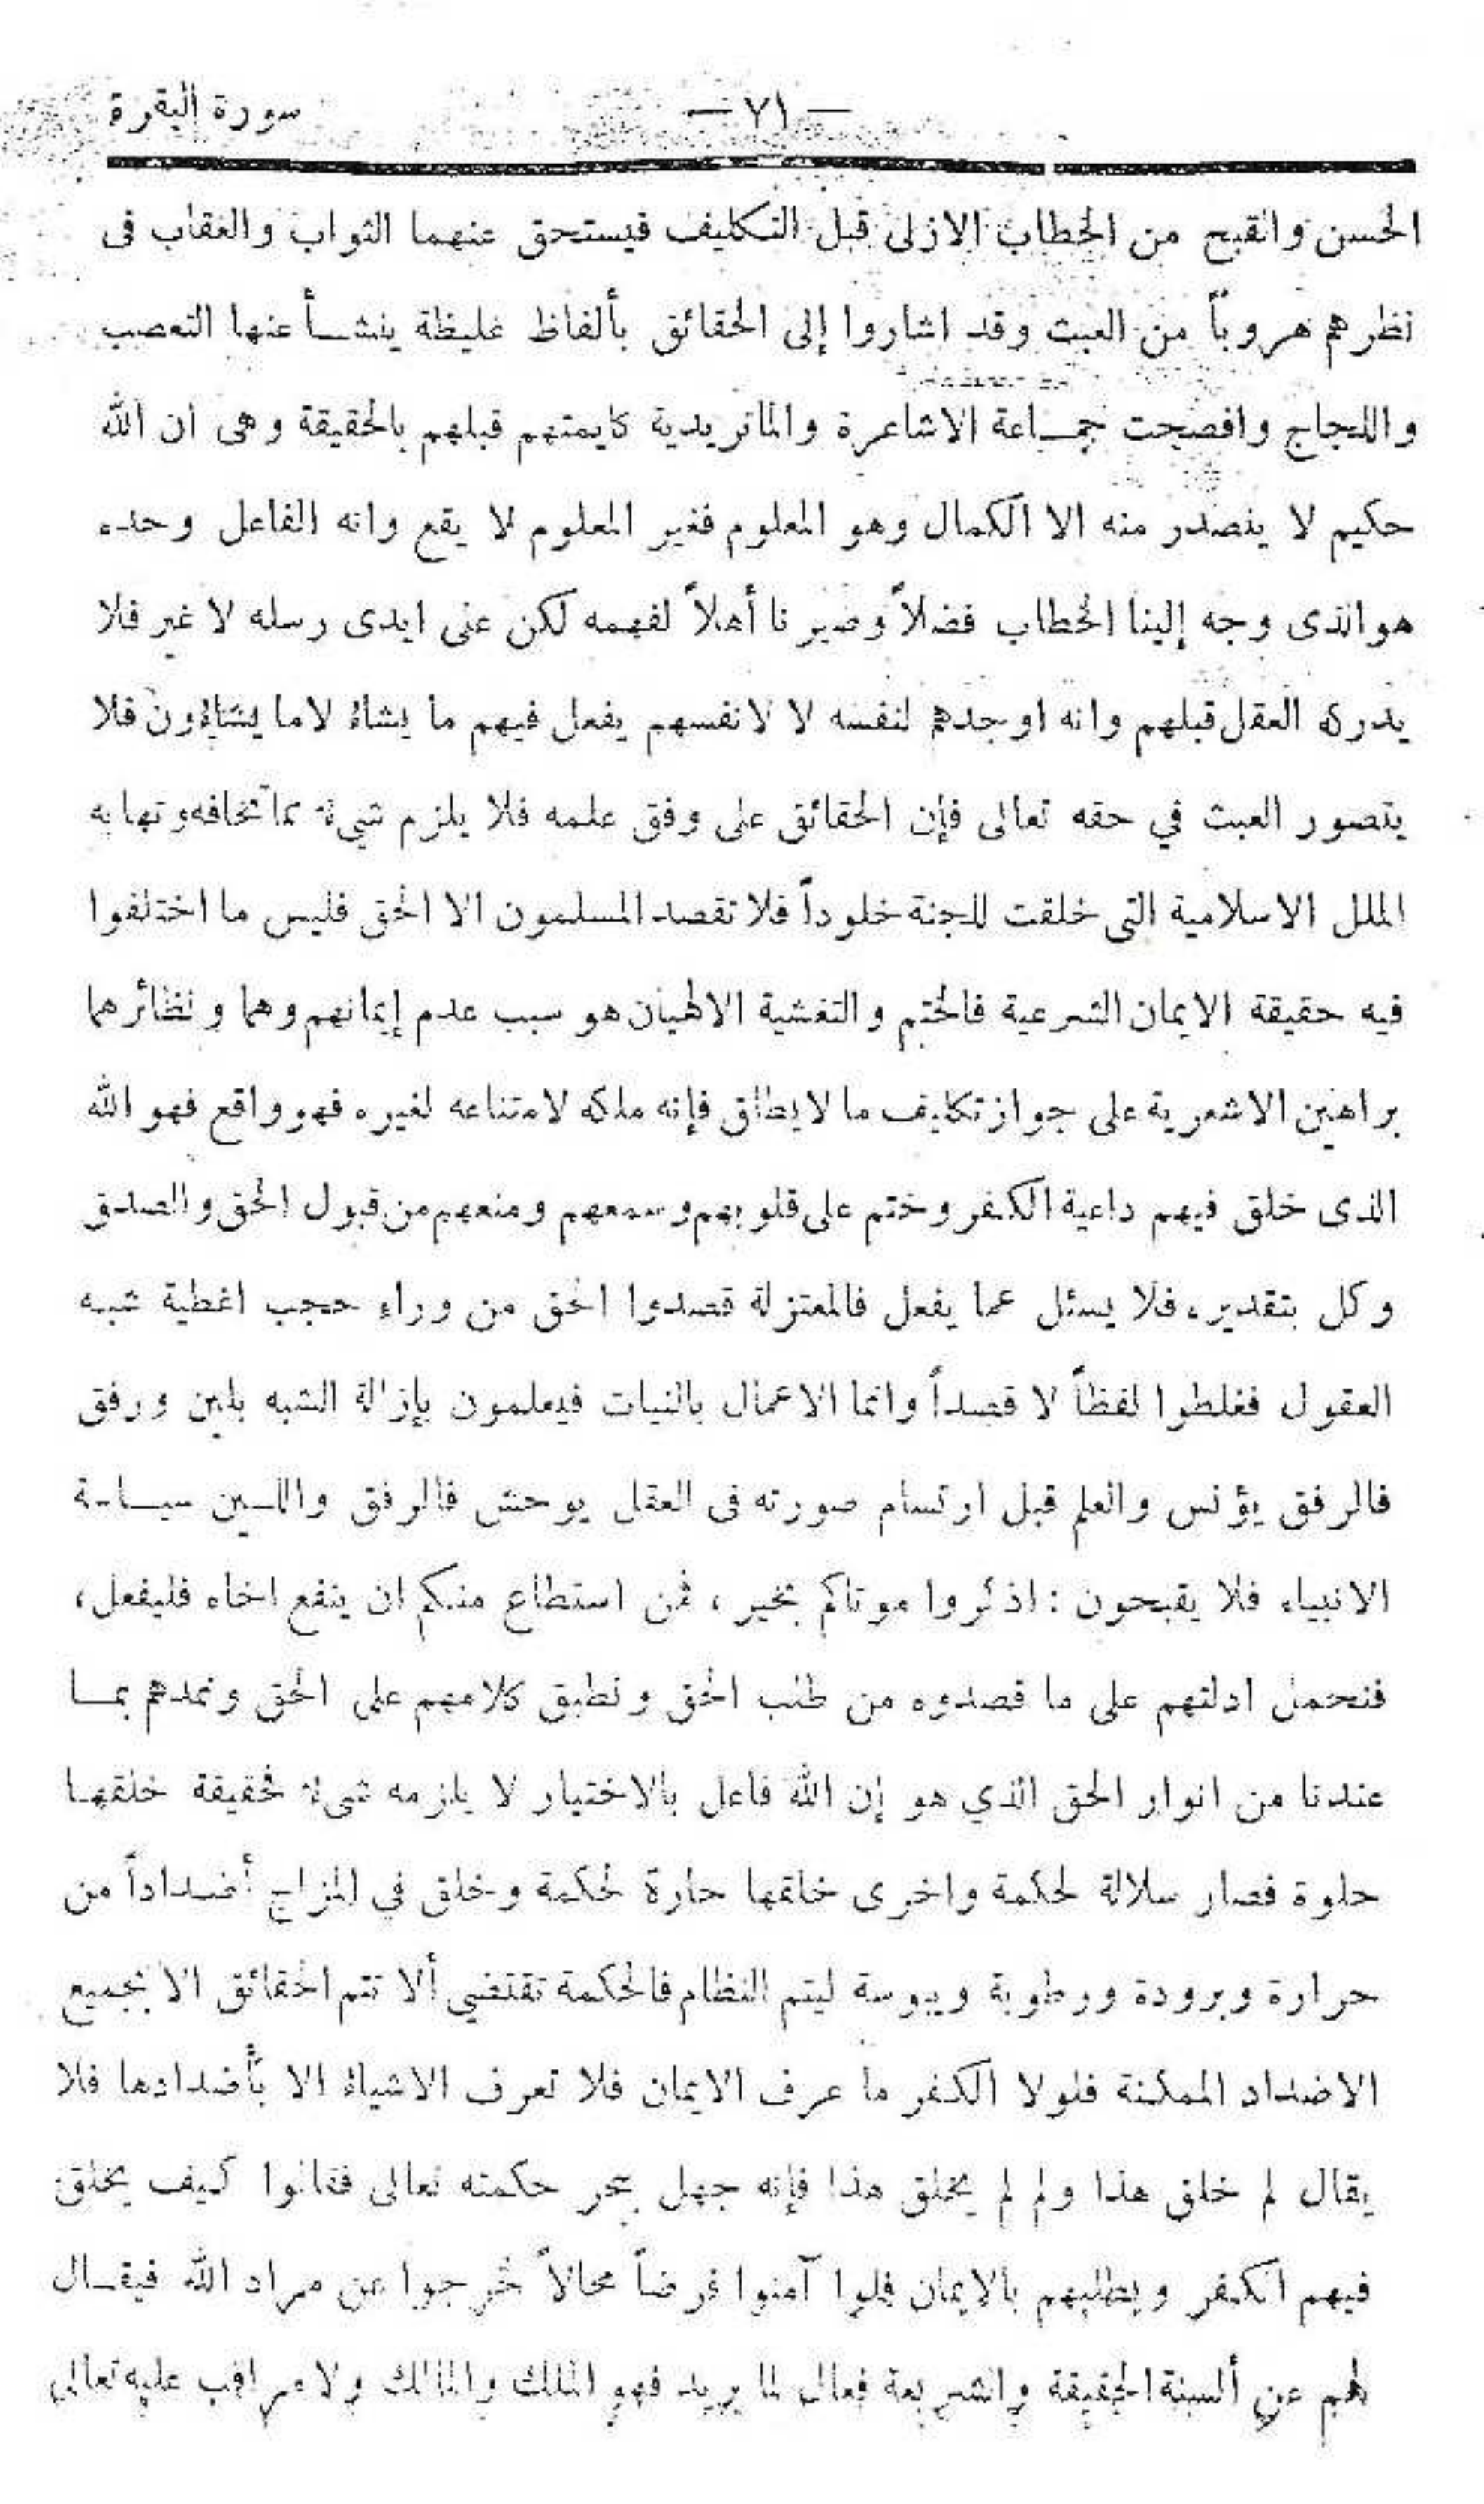 — ٧١ — سورة البقرة
الحسن والقبح من الخطاب الازلى قبل التكليف فيستحق عنهما الثواب والعقاب فى
نظرهم هروباً من العبث وقد اشاروا إلى الحقائق بألفاظ غليظة ينشأ عنها التعصب
واللجاج وافصحت جماعة الاشاعرة والماتريدية كايمتهم قبلهم بالحقيقة وهى ان الله
حكيم لا ينصدر منه الا الكمال وهو المعلوم فغير المعلوم لا يقع وانه الفاعل وحده
هو الذى وجه إلينا الخطاب فضلاً وصير نا أهلاً لفهمه لكن على ايدى رسله لا غير فلا
يدركه العقل قبلهم وانه اوجدهم لنفسه لا لانفسهم يفعل فيهم ما يشاء لا ما يشاؤون فلا
يتصور العبث في حقه تعالى فإن الحقائق على وفق علمه فلا يلزم شيء مما تخافه وتهابه
الملل الاسلامية التى خلقت للجنة خلوداً فلا تقصد المسلمون الا الحق فليس ما اختلفوا
فيه حقيقة الايمان الشرعية فالختم والتغشية الالهيان هو سبب عدم إيمانهم وهما ونظائرهما
براهين الاشعرية على جواز تكليف ما لا يطاق فإنه ملكه لامتناعه لغيره فهو واقع فهو الله
الذى خلق فيهم داعية الكفر وختم على قلوبهم وسمعهم ومنعهم من قبول الحق والصدق
وكل بتقديره فلا يسئل عما يفعل فالمعتزلة قصدوا الحق من وراء حجب اغطية شبه
العقول فغلطوا لفظاً لا قصداً وانما الاعمال بالنيات فيعلمون بإزالة الشبه بلين ورفق
فالرفق يؤنس والعلم قبل ارتسام صورته فى العقل يوحش فالرفق واللـين سياسة
الانبياء فلا يقبحون : اذكروا موتاكم بخير ، فمن استطاع منكم ان ينفع اخاه فليفعل ،
فنحمل ادلتهم على ما قصدوه من طلب الحق ونطبق كلامهم على الحق ونمدهم بمـا
عندنا من انوار الحق الذي هو إن الله فاعل بالاختيار لا يلزمه شىء فحقيقة خلقهـا
حلوة فصار سلالة لحكمة واخرى خلقها حارة لحكمة وخلق في المزاج أضداداً من
حرارة وبرودة ورطوبة ويبوسة ليتم النظام فالحكمة تقتضي ألا تتم الحقائق الا بجميع
الاضداد الممكنة فلولا الكفر ما عرف الايمان فلا تعرف الاشياء الا بأضدادها فلا
يقال لم خلق هذا ولم لم يخلق هذا فإنه جهل بحر حكمته تعالى فقالوا كيف يخلق
فيهم الكفر ويطلبهم بالايمان فلوا آمنوا فرضاً محالاً خرجوا عن مراد الله فيقـال
لهم عن ألسنة الحقيقة والشريعة فعال لما يريد فهو الملك والمالك ولا مراقب عليه تعالى